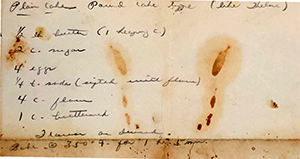 Plain Cake Pound Cake type (like Thelma)
1/2 lb butter (1 heaping c)
2 c. sugar
4 eggs
1/4 t. soda (sifted with flour)
4 c. flour
1 c. buttermilk
Flavor as
Bake @ 350° F. for 1 hr. 5 min.